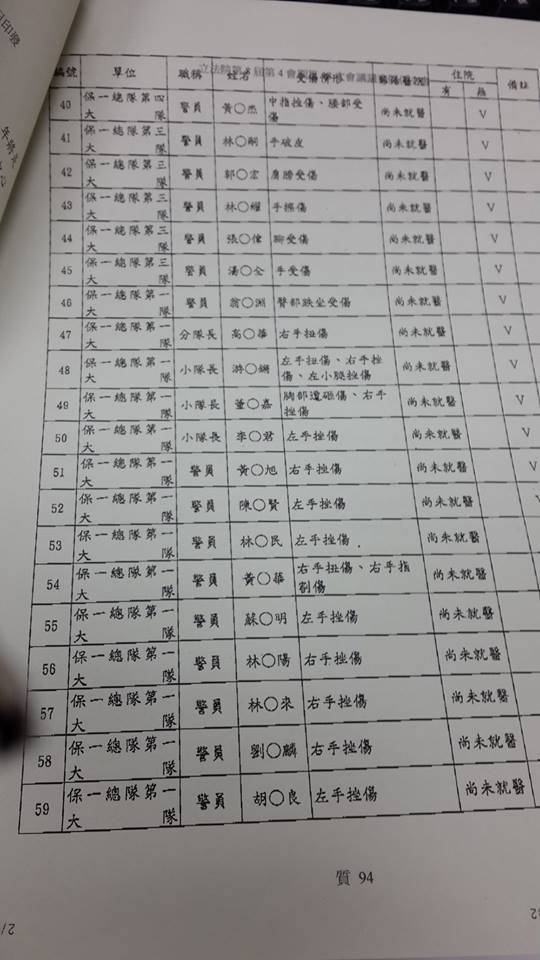 日印發
立法院第 8 屆第 4 會
編號 單位 職稱 姓名 受傷情形 住院 備註
有 無
40 保一總隊第四大隊 警員 黃○杰 中指挫傷、腰部受傷 尚未就醫 V
41 保一總隊第三大隊 警員 林○嗣 手破皮 尚未就醫 V
42 保一總隊第三大隊 警員 郭○宏 肩膀受傷 尚未就醫 V
43 保一總隊第三大隊 警員 林○耀 手擦傷 尚未就醫 V
44 保一總隊第三大隊 警員 張○偉 腳受傷 尚未就醫 V
45 保一總隊第三大隊 警員 湯○全 手受傷 尚未就醫 V
46 保一總隊第一大隊 警員 翁○淵 臀部跌坐受傷 尚未就醫 V
47 保一總隊第一大隊 分隊長 高○華 右手扭傷 尚未就醫 V
48 保一總隊第一大隊 小隊長 游○鏘 左手扭傷、右手挫傷、左小腿挫傷 尚未就醫 V
49 保一總隊第一大隊 小隊長 董○嘉 胸部遭砸傷、右手挫傷 尚未就醫 V
50 保一總隊第一大隊 小隊長 李○君 左手挫傷 尚未就醫 V
51 保一總隊第一大隊 警員 黃○旭 右手挫傷 尚未就醫 V
52 保一總隊第一大隊 警員 陳○賢 左手挫傷 尚未就醫 V
53 保一總隊第一大隊 警員 林○民 左手挫傷 尚未就醫
54 保一總隊第一大隊 警員 黃○華 右手扭傷、右手指割傷 尚未就醫
55 保一總隊第一大隊 警員 蘇○明 左手挫傷 尚未就醫
56 保一總隊第一大隊 警員 林○陽 右手挫傷 尚未就醫
57 保一總隊第一大隊 警員 林○來 右手挫傷 尚未就醫
58 保一總隊第一大隊 警員 劉○麟 右手挫傷 尚未就醫
59 保一總隊第一大隊 警員 胡○良 左手挫傷 尚未就醫
質 94